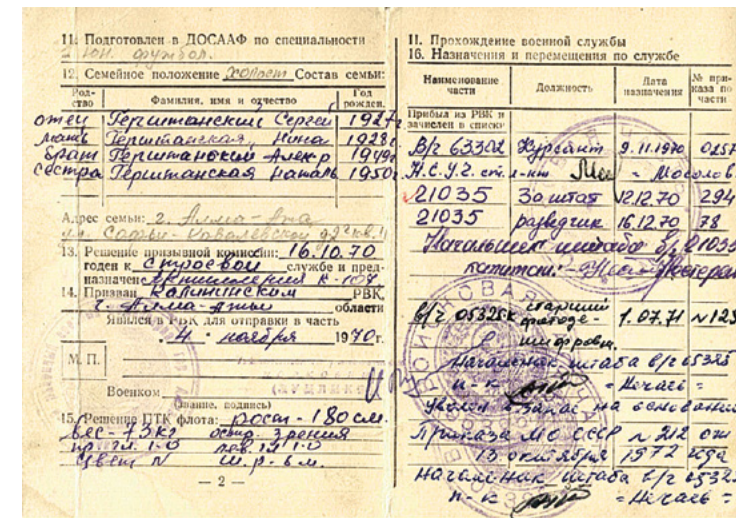 11. Подготовлен в ДОСААФ по специальности
2 юн. футбол.
12. Семейное положение холост Состав семьи:
Род-
ство
Фамилия, имя и отчество
Год
рожден.
отец Герштанский Сергей 1927г.
мать Герштанская, Нина 1928г.
брат Герштанский Алекр 1949г
сестра Герштанская Наталь 1950г
Адрес семьи: г. Алма-Ата
ул. Софьи-Ковалевской
13. Решение призывной комиссии: 16.10.70
годен к строевой службе и пред-
назначен
14. Призван Калининским РВК,
г. Алма-Аты области
Явился в РВК для отправки в часть
"4" ноября 1970г.
М. П.
Военком
(звание, подпись)
15. Решение ПТК флота: рост - 180 см.
вес - 73кг остр. зрения
пр. гл. 1-0 лев. гл 1-0
цвет N ш.р - 6 м.
— 2 —
II. Прохождение военной службы
16. Назначения и перемещения по службе
Наименование
части
Должность
Дата
назначения
№ при-
каза по
части
Прибыл из РВК и
зачислен в списки
В/ч 63302 Курсант 9.11.1970 0257
Н.С.У.2. ст. л-нт = Мосолов
21035 За штат 12.12.70 294
21035 разведчик 16.12.70 78
Начальник штаба в/ч 21035
капитан:
в/ч 05325к старший фотоде-
шифровщ. 1.07.71 №123
Начальник штаба в/ч 05325
п-к = Нечаев =
Уволен в запас на основании
Приказа МО СССР № 212 от
13 октября 1972 года
Начальник штаба в/ч 05325
п-к = Нечаев =